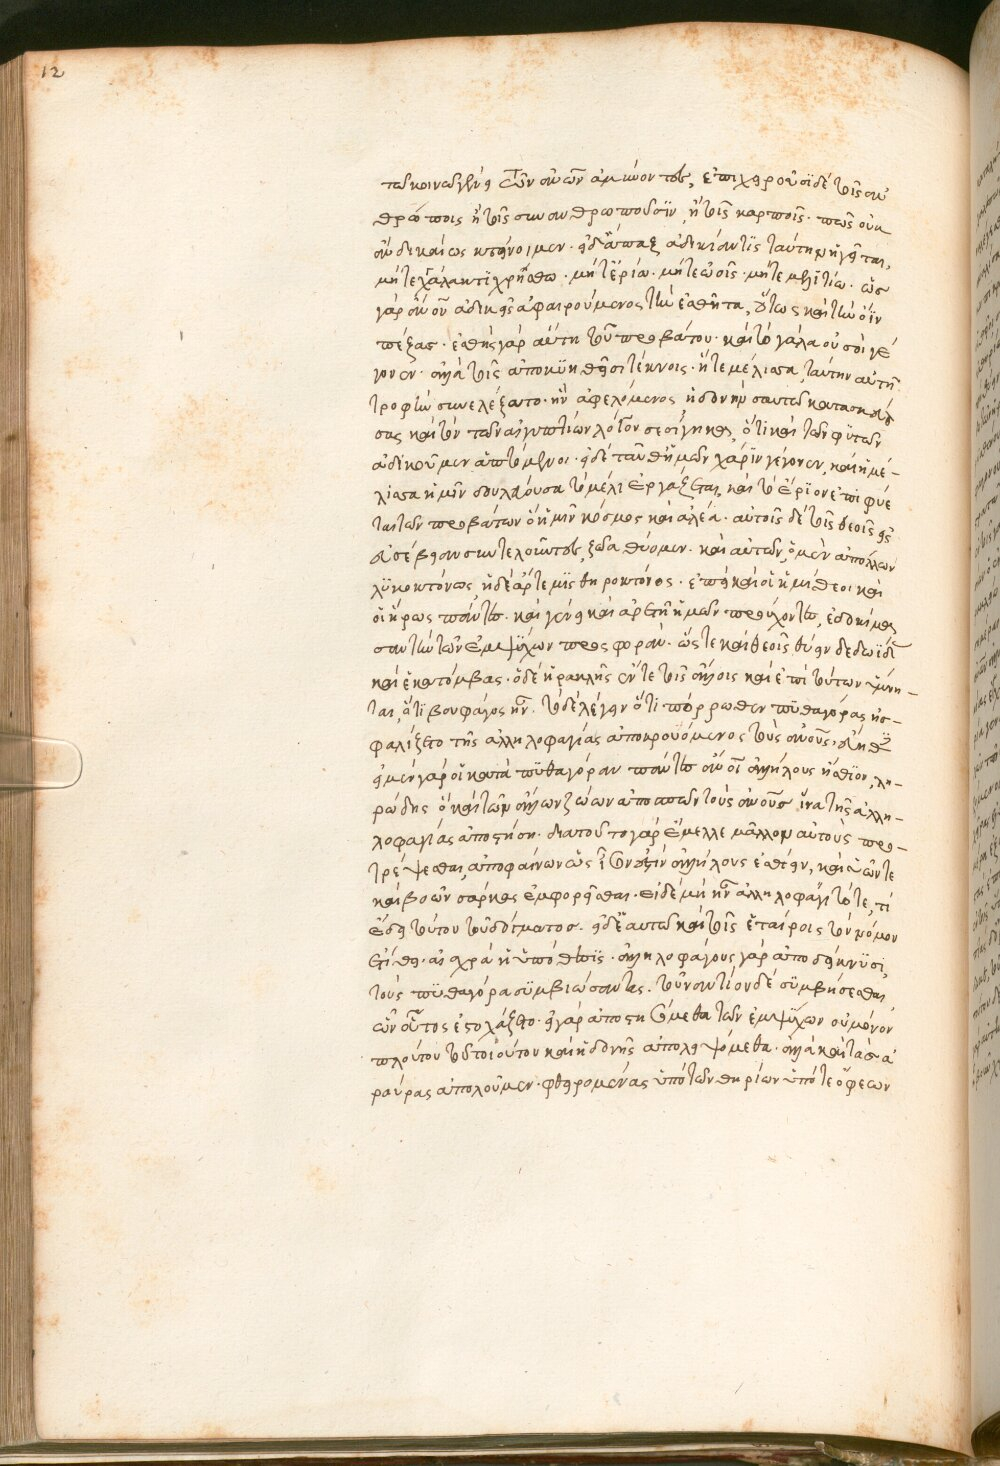 12
τῶ κοινωλεῖν τὸν σινῶν ἀμύνοντος, ἐπιχειροῦσι δὲ τοῖς ἀν
θρώποις ἢ τοῖς συνανθρωποῦσιν, ἢ τοῖς καρποῖς· πῶς οὐκ
ἂν δικαίως κτείνοιμεν· εἰ δ' ἅπαξ ἀδικίαν τὶς ταύτην ἡγεῖται,
μήτε γάλακτι χρήσθω· μήτ' ἐρίω· μήτε ὠοῖς· μήτε μέλιτι· ὡς
γὰρ ἄνον ἀδικεῖς ἀφαιρούμενος τὴν ἐσθῆτα, οὕτως καὶ τὴν ὄϊν
πέξας· ἐσθὴς γὰρ αὕτη τοῦ προβάτου· καὶ τὸ γάλα οὐ σοὶ γέ
γονεν· ἀλλὰ τοῖς ἀποκυηθεῖσι τέκνοις· ἥ τε μέλισσα, ταύτην αὐτῇ
τροφὴν συνελέξατο· ἣν ἀφελόμενος ἡδονὴν σαυτῶ κατασκευά
σας καὶ τὸν τῶν αἰγυπτίων λόγον σεσίγηκα, ὅτι καὶ τῶν φυτῶν
ἀδικοῦμεν ἁπτόμενοι· εἰ δὲ ταῦθ' ἡμῶν χάριν γέγονεν, καὶ ἡ μέ-
λισσα ἡμῖν δουλεύουσα τὸ μέλι ἐργάζεται, καὶ τὸ ἔριον ἐπιφύε
ται τῶν προβάτων ὁ ἡμῖν κόσμος καὶ ἀλέα· αὐτοῖς δὲ τοῖς θεοῖς εἰς
εὐσέβειαν συντελοῦντες, ζῶα θύομεν· καὶ αὐτῶν, ὁ μὲν ἀπόλλων
λυκοκτόνος, ἡ δὲ ἄρτεμις θηροκτόνος· ἐπεὶ καὶ οἱ ἡμίθεοι καὶ
οἱ ἥρωες πάντες· καὶ γένει καὶ ἀρετῇ ἡμῶν προύχοντες, ἐδοκίμα
σαν τὴν τῶν ἐμψύχων προσφοράν· ὥστε καὶ θεοῖς θύειν δωδεκηΐδας
καὶ ἑκατόμβας· ὁ δὲ ἡρακλῆς ἔν τε τοῖς ἄλλοις καὶ ἐπὶ τούτων ὑμνή-
ται, ὅτι βουφάγος ἦν. τὸ δὲ λέγειν ὅτι πόρρωθεν πυθαγόρας ἠσ-
φαλίζετο τῆς ἀλληλοφαγίας ἀποκρουόμενος τοὺς ἀνους, εὐηθ
εἰ μὲν γὰρ οἱ κατὰ πυθαγόραν πάντες ἄνοι ἀλλήλους ἤσθιον, λη-
ρώδης ὁ καὶ τῶν ἄλλων ζώων ἀποσπῶν τοὺς ἀνους ἵνα τῆς ἀλλη-
λοφαγίας ἀποστήση· διὰ τοῦτο γὰρ ἔμελλε μᾶλλον αὐτοὺς προ-
τρέψεσθαι, ἀποφαίνων ὡς ἴσον ἐστὶν ἀλλήλους ἐσθίειν, καὶ συῶν τε
καὶ βοῶν σάρκας ἐμφορεῖσθαι· εἰ δὲ μὴ ἦν ἀλληλοφαγία τότε, τί
ἔδει τούτου τοῦ δόγματος· εἰ δὲ ἑαυτῶ καὶ τοῖς ἑταίροις τὸν νόμον
ἐτίθει· αἰσχρὰ ἡ ὑπόθεσις· ἀλληλοφάγους γὰρ ἀποδείκνυσι
τοὺς πυθαγόρα συμβιώσαντας. τοὐναντίον δὲ συμβήσεσθαι,
ὧν οὗτος ἐστοχάζετο· εἰ γὰρ ἀποστησόμεθα τῶν ἐμψύχων οὐ μόνον
πλούτου τοῦ τοιούτου καὶ ἡδονῆς ἀπολειψόμεθα· ἀλλὰ καὶ τὰς ἀ
ρούρας ἀπολοῦμεν· φθειρομένας ὑπὸ τῶν θηρίων ὑπό τε ὄφεων